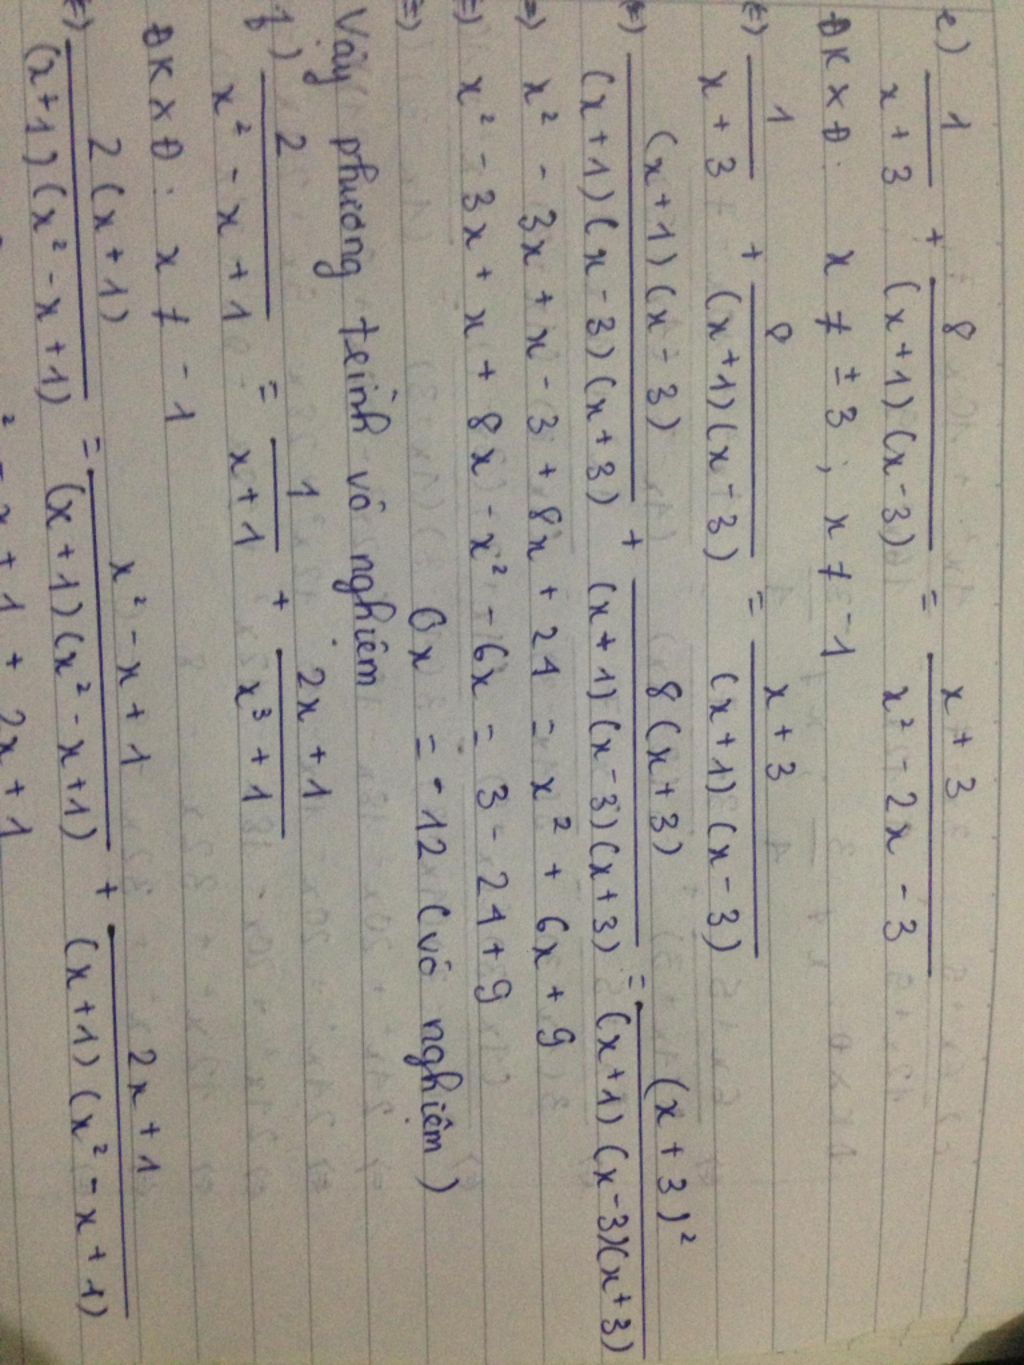 e) 1/(x + 3) + 8/((x+1)(x-3)) = (x + 3)/(x² - 2x - 3)
ĐKXĐ: x ≠ ± 3 ; x ≠ -1
1/(x + 3) + 8/((x+1)(x-3)) = (x + 3)/((x+1)(x-3))
((x+1)(x-3))/((x+1)(x-3)(x+3)) + 8(x+3)/((x+1)(x-3)(x+3)) = (x+3)²/((x+1)(x-3)(x+3))
⇒ x² - 3x + x - 3 + 8x + 24 = x² + 6x + 9
x² - 3x + x + 8x - x² - 6x = 3 - 24 + 9
0x = -12 (vô nghiệm)
Vậy phương trình vô nghiệm
f) 2/(x² - x + 1) = 1/(x+1) + (2x + 1)/(x³ + 1)
ĐKXĐ: x ≠ -1
2(x+1)/((x+1)(x² - x + 1)) = (x² - x + 1)/((x+1)(x² - x + 1)) + (2x + 1)/((x+1)(x² - x + 1))
x + 1 + 2x + 1